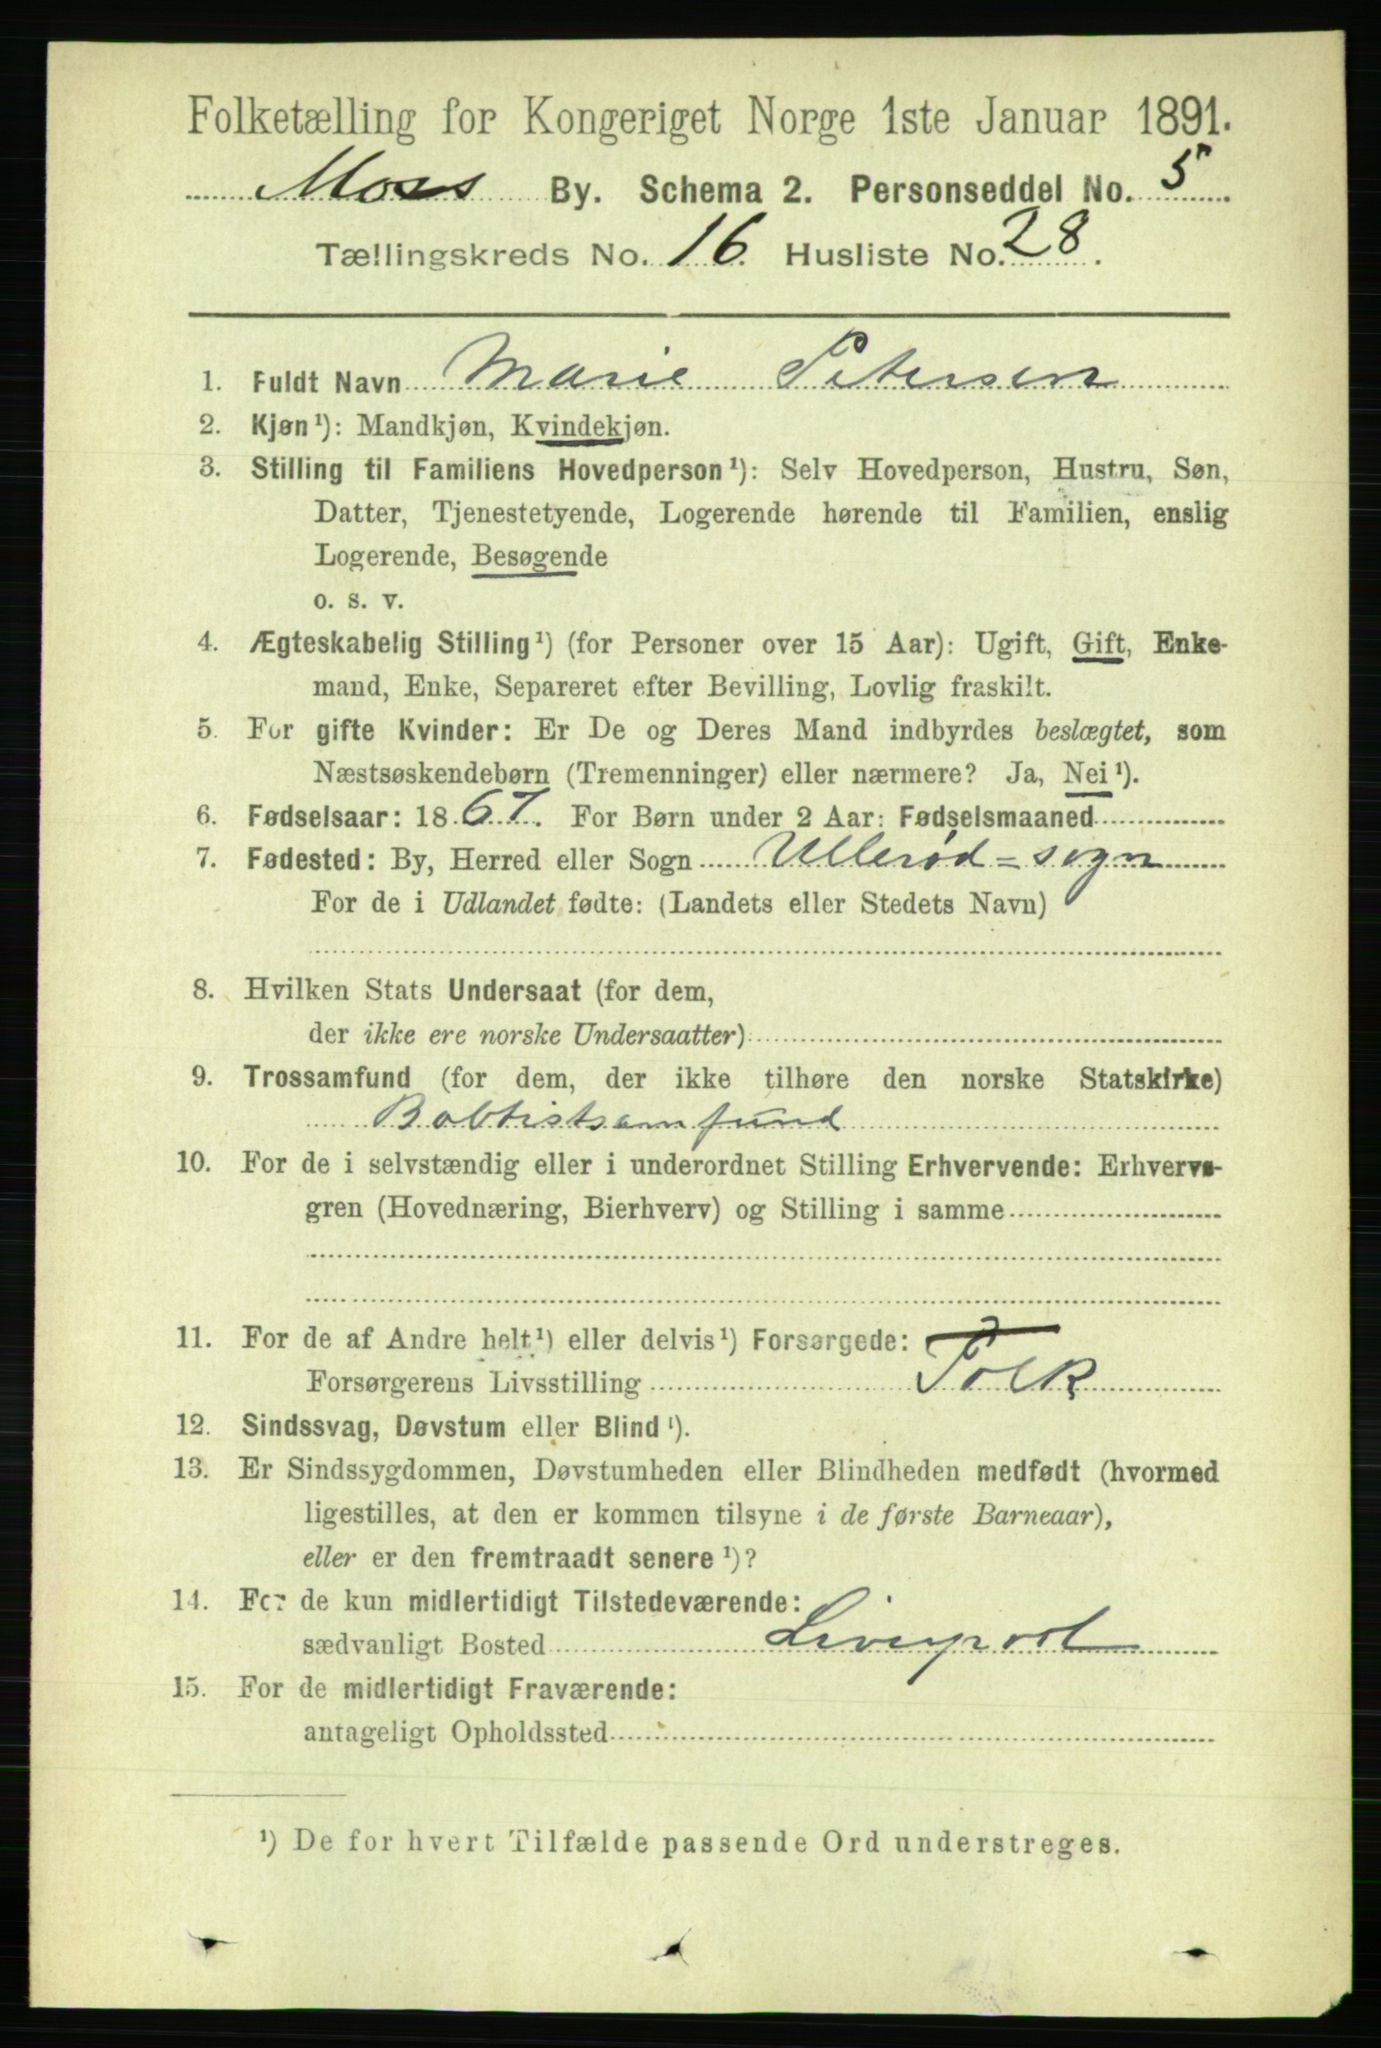 Folketælling for Kongeriget Norge 1ste Januar 1891.
Moss By. Schema 2. Personseddel No. 5
Tællingskreds No. 16. Husliste No. 28.
1. Fuldt Navn Marie Petersen
2. Kjøn¹): Mandkjøn, Kvindekjøn.
3. Stilling til Familiens Hovedperson¹): Selv Hovedperson, Hustru, Søn,
Datter, Tjenestetyende, Logerende hørende til Familien, enslig
Logerende, Besøgende
o. s. v.
4. Ægteskabelig Stilling¹) (for Personer over 15 Aar): Ugift, Gift, Enke-
mand, Enke, Separeret efter Bevilling, Lovlig fraskilt.
5. For gifte Kvinder: Er De og Deres Mand indbyrdes beslægtet, som
Næstsøskendebørn (Tremenninger) eller nærmere? Ja, Nei¹).
6. Fødselsaar: 1867. For Børn under 2 Aar: Fødselsmaaned
7. Fødested: By, Herred eller Sogn Ullerød=sogn
For de i Udlandet fødte: (Landets eller Stedets Navn)
8. Hvilken Stats Undersaat (for dem,
der ikke ere norske Undersaatter)
9. Trossamfund (for dem, der ikke tilhøre den norske Statskirke)
Babtistsamfund
10. For de i selvstændig eller i underordnet Stilling Erhvervende: Erhvervs-
gren (Hovednæring, Bierhverv) og Stilling i samme
11. For de af Andre helt¹) eller delvis¹) Forsørgede:
Forsørgerens Livsstilling Tolk
12. Sindssvag, Døvstum eller Blind¹).
13. Er Sindssygdommen, Døvstumheden eller Blindheden medfødt (hvormed
ligestilles, at den er kommen tilsyne i de første Barneaar),
eller er den fremtraadt senere¹)?
14. For de kun midlertidigt Tilstedeværende:
sædvanligt Bosted Liverpool
15. For de midlertidigt Fraværende:
antageligt Opholdssted
¹) De for hvert Tilfælde passende Ord understreges.